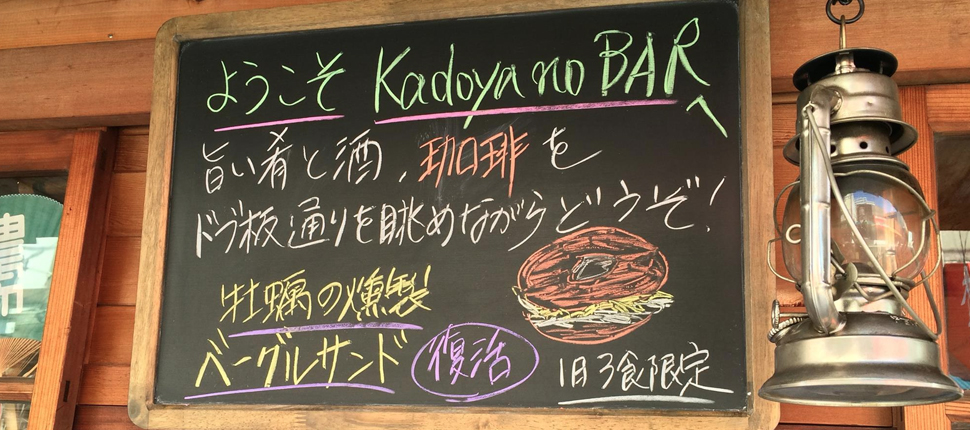 ようこそ Kadoya no BARへ
旨い肴と酒,珈琲を
ドブ板通りを眺めながらどうぞ!
牡蠣の燻製
ベーグルサンド 復活
1日3食限定